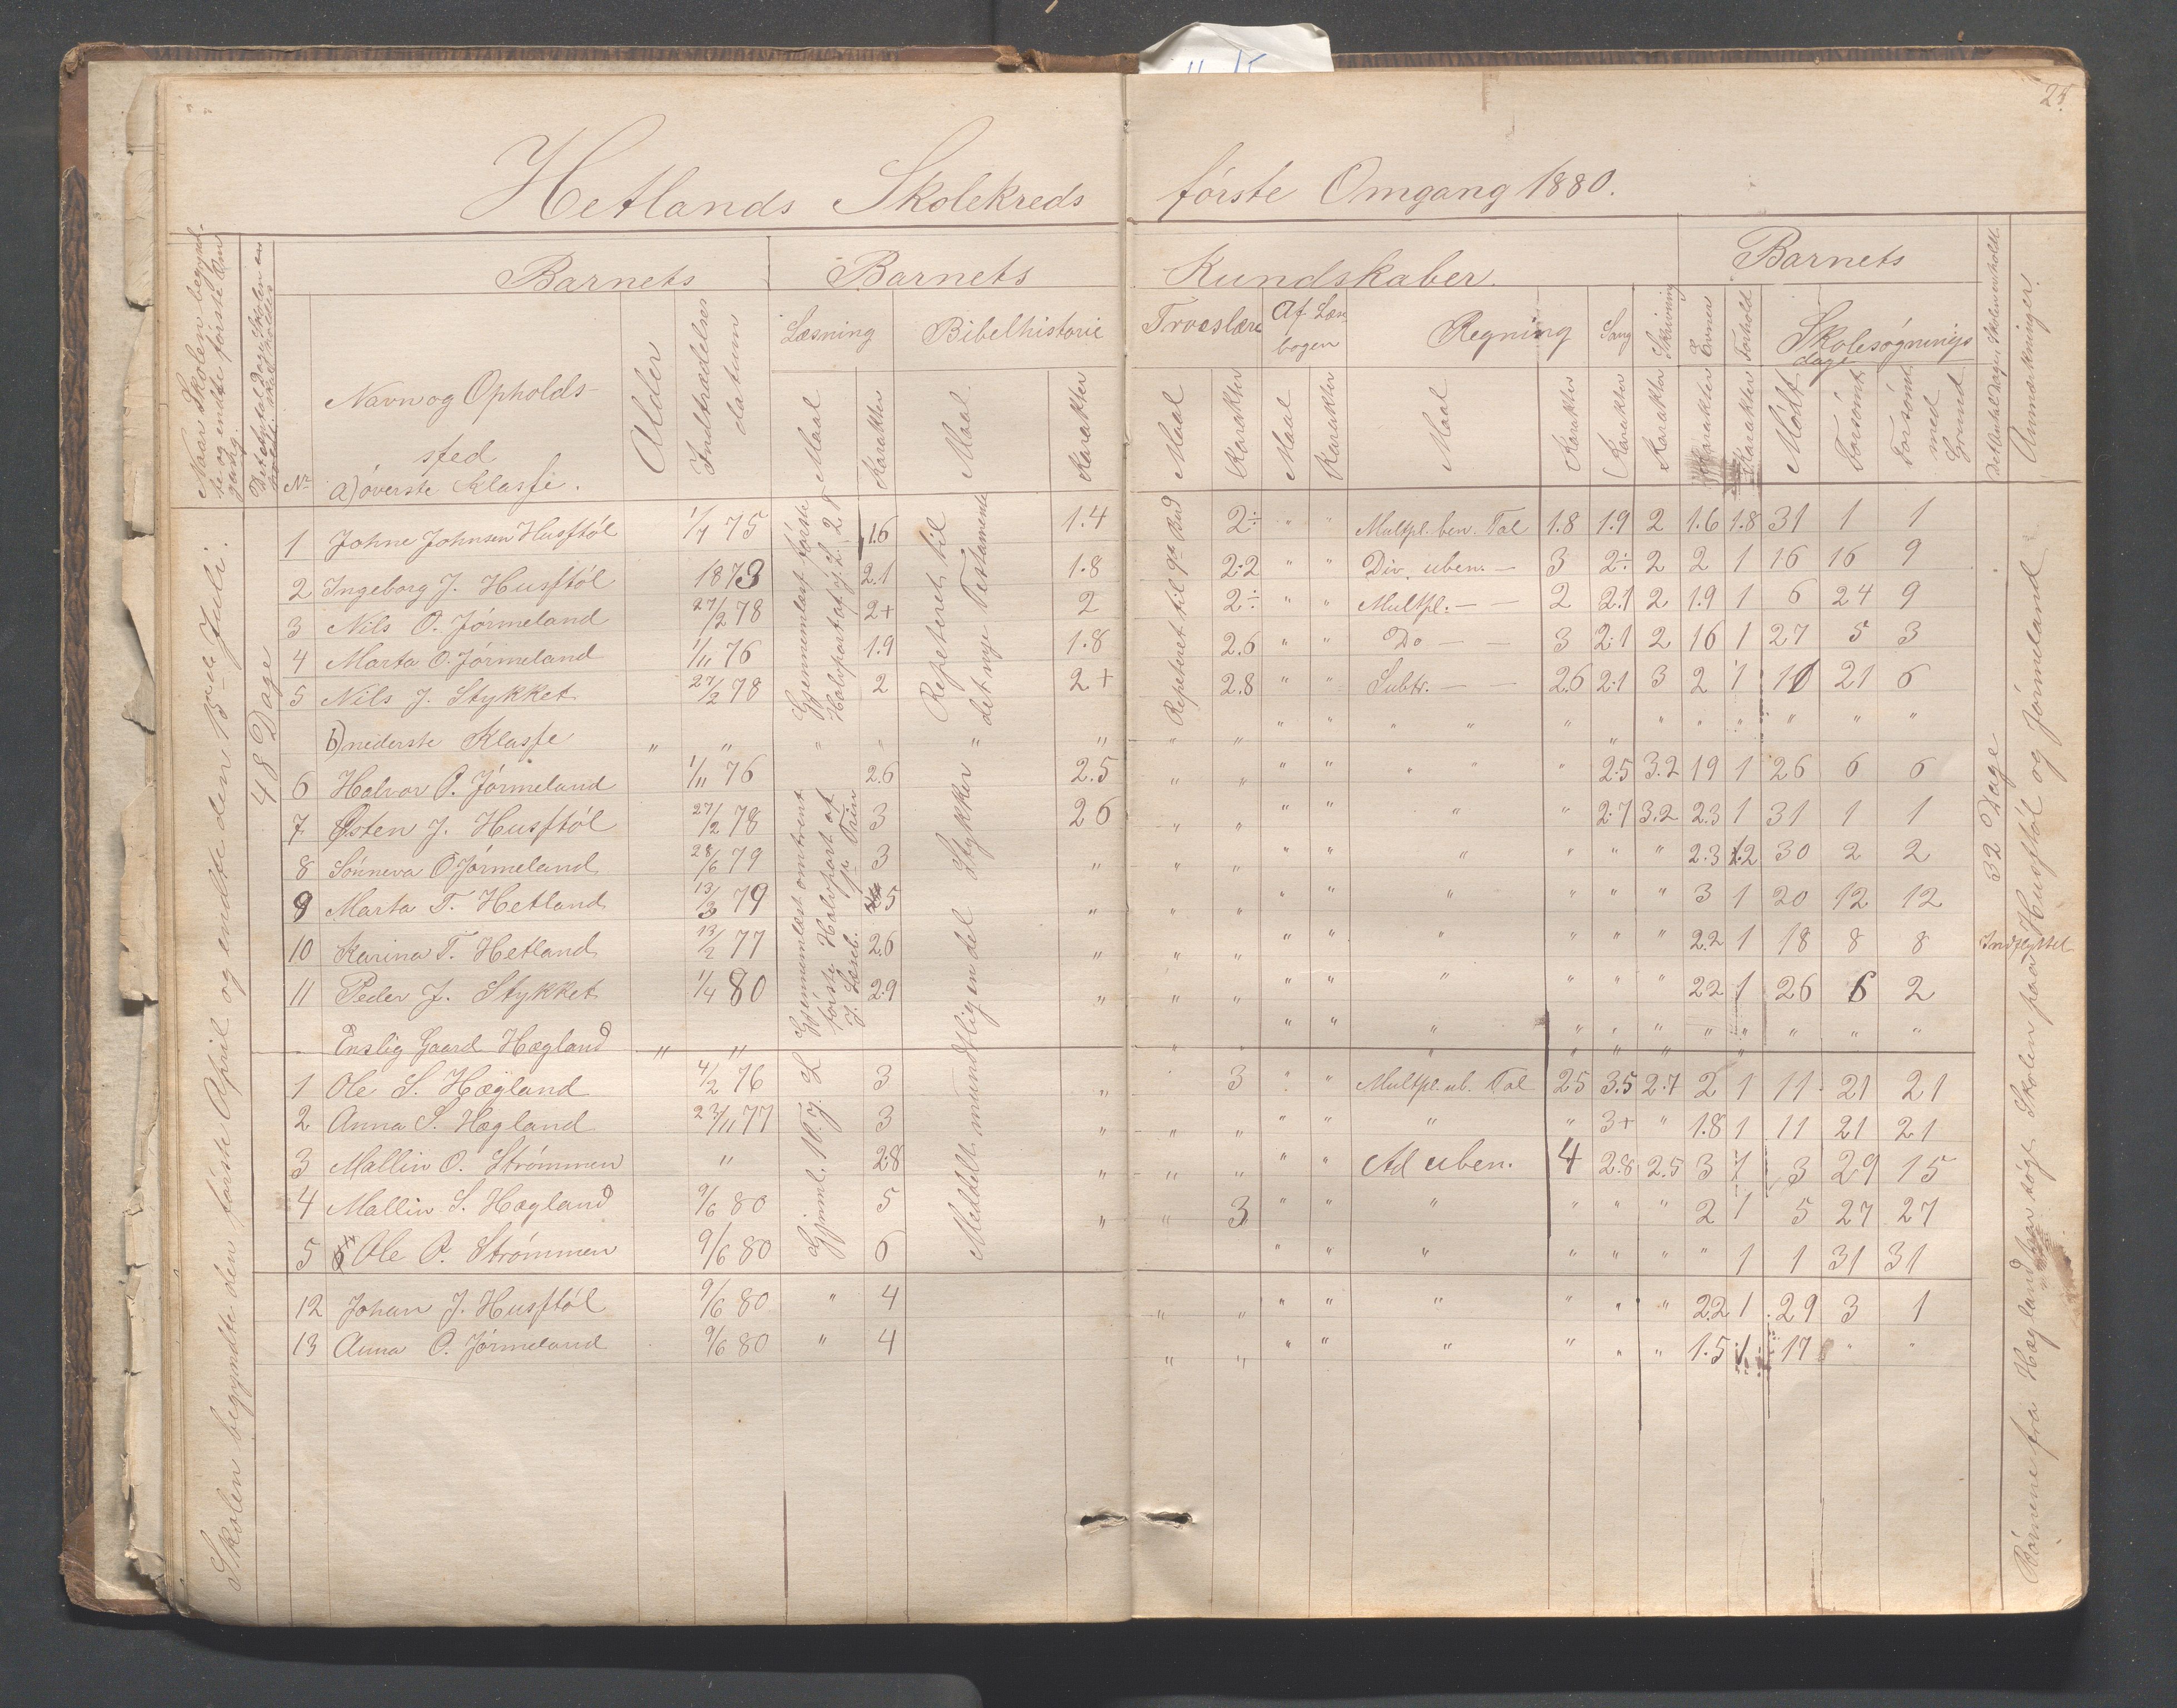 25.
Hetlands Skolekreds første Omgang 1880.
Naar Skolen begynd-
te og endte første Om
gang.
Det Antal Dage Skolen er
Barnets
Barnets Kundskaber.
Barnets
Det Antal Dage Skolen er holdt
Anmærkninger.
Nr
Navn og Opholds-
sted
a) øverste Klasse.
Alder
Indtrædelses
datum
Læsning
Bibelhistorie
Troeslære
Af Læse
bogen
Regning
Sang
Skrivning
Evner
Forhold
Skolesøgnings
dage
Maal Karakter Maal Karakter Maal Karakter Maal Karakter Maal Karakter Karakter Karakter Karakter Karakter Mødt Forsømt Forsømt
med
Grund
Skolen begyndte den første April og endte den 15de Juli.
48 Dage
Gjennemlæst første
Halvpart af J. L. 2 T
Repeteret til
det nye Testamente
Repeteret til 9de Bud
1 Johne Johnsen Husstøl 1/7 75 1.6 1.4 2÷ " " Multpl. ben. Tal 1.8 1.9 2 1.6 1.8 31 1 1
2 Ingeborg J. Husstøl 1873 2.1 1.8 2.2 " " Div. uben. — 3 2÷ 2 2 1 16 16 9
3 Nils O. Jørmeland 27/2 78 2+ 2 2÷ " " Multpl. — — 2 2.1 2 1.9 1 6 24 9
4 Marta O. Jørmeland 1/11 76 1.9 1.8 2.6 " " Do — — 3 2.1 2 16 1 27 5 3
5 Nils J. Stykket 27/2 78 2 2+ 2.8 " " Subtr. — — 2.6 2.1 3 2 1 11 21 6
b) nederste Klasse " " " " " " " " " " " " " " " " " " " "
Gjennemlæst omtrent
første Halvpart af
J. Læseb. 1ste Trin
Meddelt mundtlig en del Stykker
6 Halvor O. Jørmeland 1/11 76 2.6 2.5 " " " " " " " 2.5 3.2 19 1 26 6 6
7 Østen J. Husstøl 27/2 78 3 26 " " " " " " 2.7 3.2 2.3 1 31 1 1
8 Sønneva O Jørmeland 28/6 79 3 " " " " " " " " " 2.3 1.2 30 2 2
9 Marta T. Hetland 13/3 79 5 " " " " " " " " " 3 1 20 12 12
10 Karina T. Hetland 13/2 77 2.6 " " " " " " " " " 2.2 1 18 8 8 Indflyttet
11 Peder J. Stykket 1/4 80 2.9 " " " " " " " " " 22 1 26 6 2
Enslig Gaard Hægland " " " " " " " " " " " " " " "
Gjnml. 1 T. J. L
1 Ole S. Hægland 4/2 76 3 " 3 " " Multpl. ub. Tal 25 3.5 2.7 2 1 11 21 21
2 Anna S. Hægland 23/11 77 3 " " " " " " " 3+ " 1.8 1 11 21 21
3 Mallin O. Strømmen " 2.8 " " " " " Ad uben. 4 2.8 2.5 3 1 3 29 15
4 Mallin S. Hægland 9/6 80 5 " " 3 " " " " " " 2 1 5 27 27
5 Ole P. Strømmen 9/6 80 6 " " " " " " " 1 1 31 31
12 Johan J. Husstøl 9/6 80 " 4 " " " " " " " " 22 1 29 3 1
13 Anna O. Jørmeland 9/6 80 " 4 " " " " " " " " 1.5 1 17 " "
32 Dage
Børnene fra Hægland har søgt Skolen paa Husstøl og Jørmeland